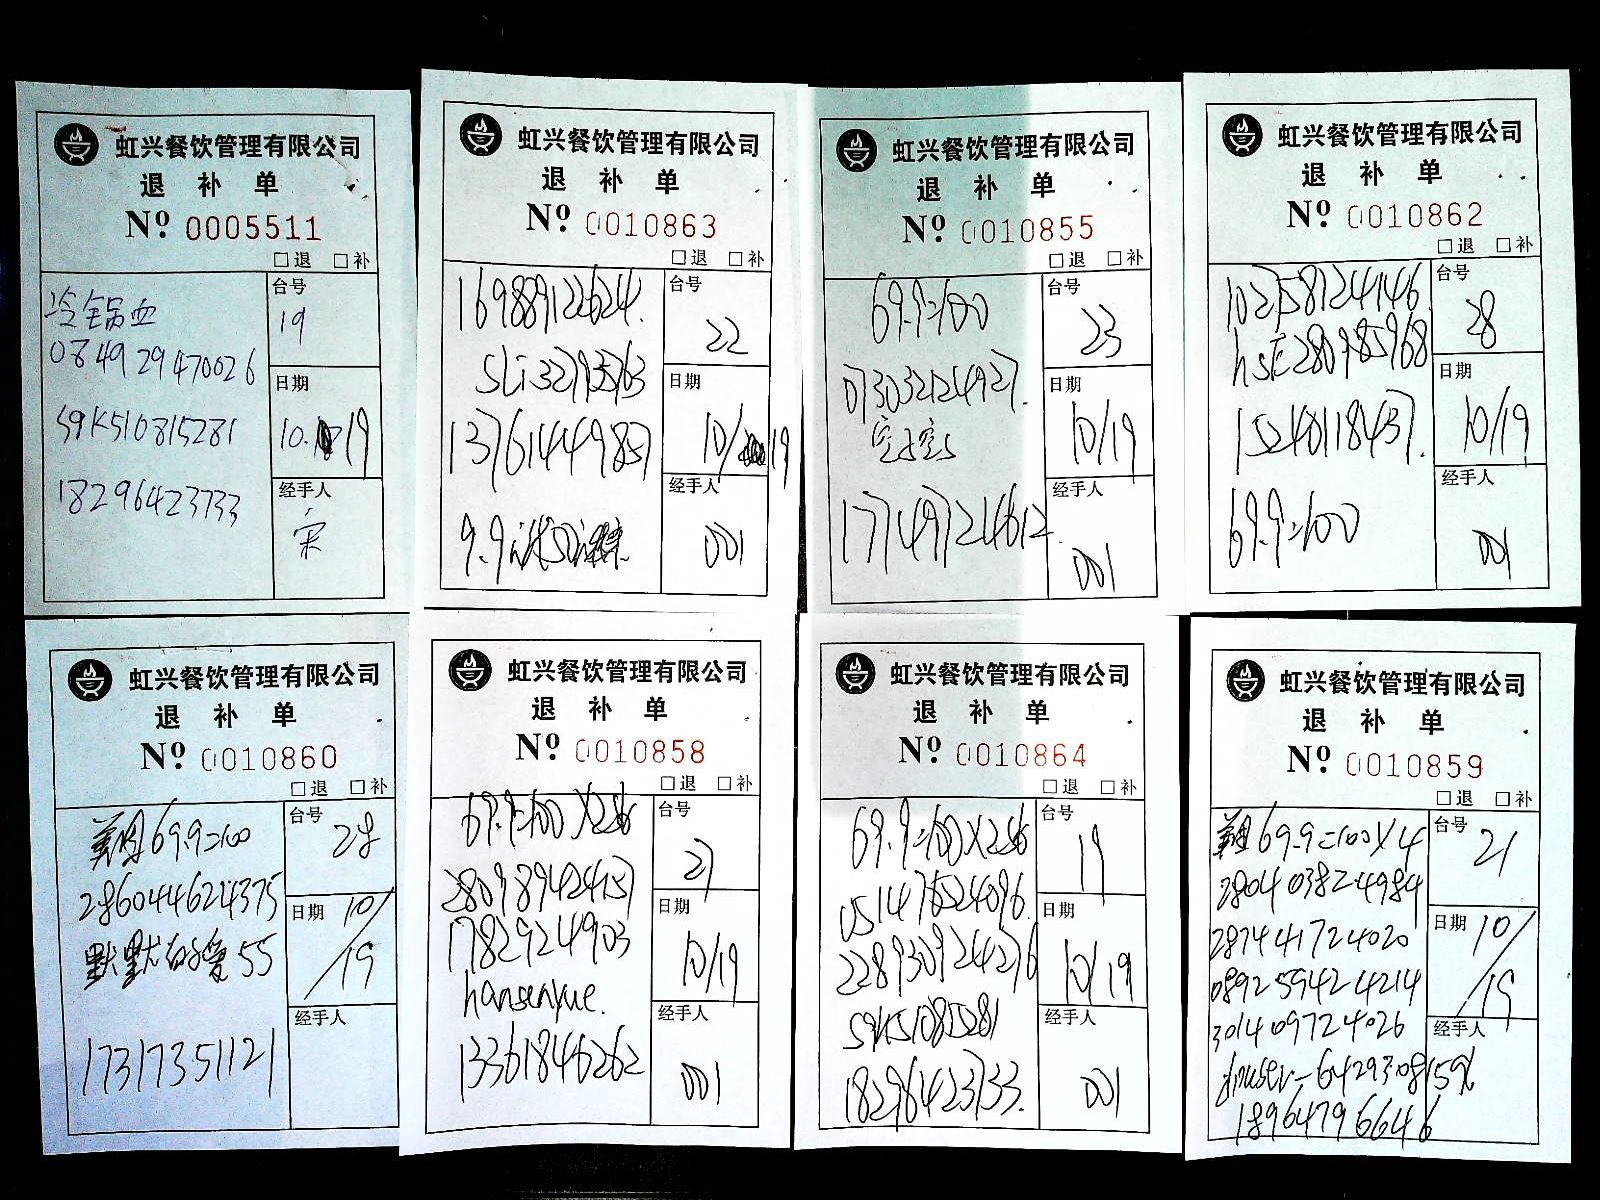 虹兴餐饮管理有限公司
退 补 单
Nº 0005511
□退 □补
冷锅血
084929470026
S9K510815281
18296423733
台号
19
日期
10. 19
经手人
宋
虹兴餐饮管理有限公司
退 补 单
Nº 0010863
□退 □补
169889122624.
SLi32793563
137614449857
9.9
台号
22
日期
10/ 19
经手人
001
虹兴餐饮管理有限公司
退 补 单
Nº 0010855
□退 □补
69.9=100
073032124927.
17749724612
台号
23
日期
10/19
经手人
001
虹兴餐饮管理有限公司
退 补 单
Nº 0010862
□退 □补
102758124146
hsE280985968
15240118437.
69.9=100
台号
28
日期
10/19
经手人
001
虹兴餐饮管理有限公司
退 补 单
Nº 0010860
□退 □补
美团69.9=100
286044624375
默默的爱55
17317351121
台号
28
日期
10/19
经手人
虹兴餐饮管理有限公司
退 补 单
Nº 0010858
□退 □补
69.9=100X2张
280989424157
1782924903
hansenyue.
13361846262
台号
27
日期
10/19
经手人
001
虹兴餐饮管理有限公司
退 补 单
Nº 0010864
□退 □补
69.9=100X2张
051476524096
228930924276
S9K510815281
18296423733.
台号
19
日期
10/19
经手人
001
虹兴餐饮管理有限公司
退 补 单
Nº 0010859
□退 □补
美团69.9=100X4
280403824984
287441724020
089259424214
301409724026
18964796646
台号
21
日期
10/19
经手人